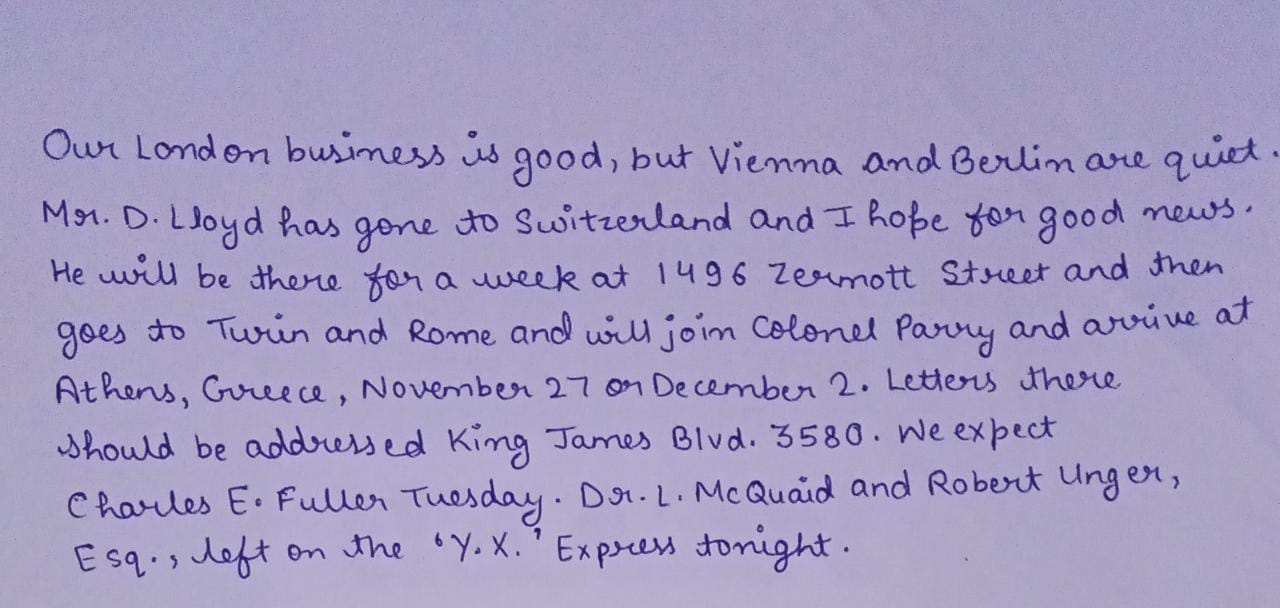 Our London business is good, but Vienna and Berlin are quiet.
Mr. D. Lloyd has gone to Switzerland and I hope for good news.
He will be there for a week at 1496 Zermott Street and then
goes to Turin and Rome and will join Colonel Parry and arrive at
Athens, Greece, November 27 or December 2. Letters there
should be addressed King James Blvd. 3580. We expect
Charles E. Fuller Tuesday. Dr. L. McQuaid and Robert Unger,
Esq., left on the 'Y.X.' Express tonight.